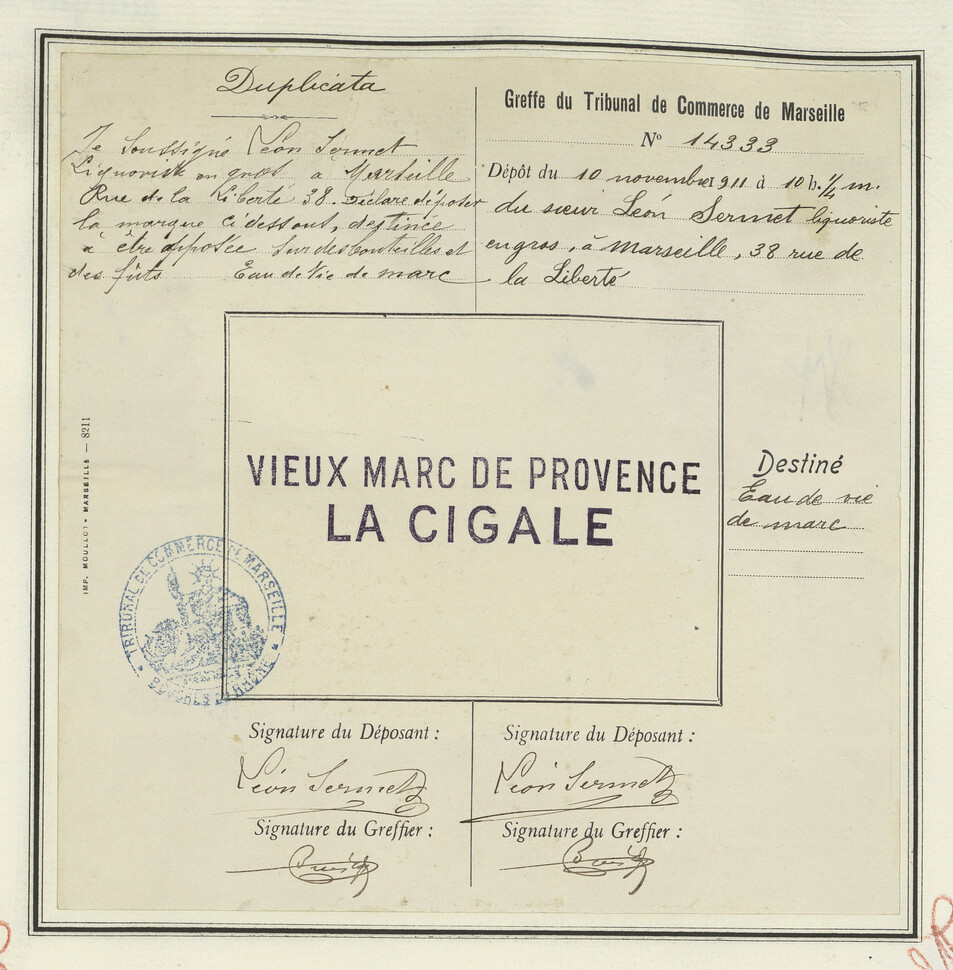 Duplicata
Je soussigné Léon Sermet
Liquoriste en gros à Marseille
Rue de la Liberté 38. Déclare déposer
la marque ci dessous, destinée
à être apposée sur des bouteilles et
des fûts Eau de Vie de marc
Greffe du Tribunal de Commerce de Marseille
N° 14333
Dépôt du 10 novembre 1911 à 10 h. 1/4 m.
du sieur Léon Sermet liquoriste
en gros, à Marseille, 38 rue de
la Liberté
VIEUX MARC DE PROVENCE
LA CIGALE
Destiné
Eau de vie
de marc
IMP. MOULLOT - MARSEILLE — 8211
TRIBUNAL DE COMMERCE DE MARSEILLE
BOUCHES DU RHÔNE
Signature du Déposant :
Léon Sermet
Signature du Greffier :
Signature du Déposant :
Léon Sermet
Signature du Greffier :